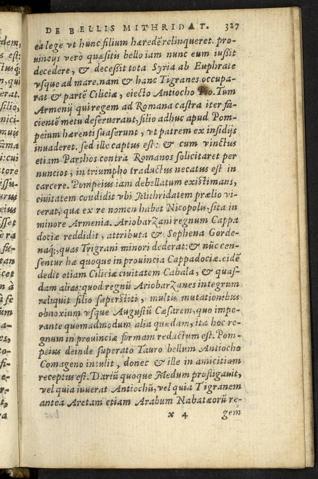 DE BELLIS MITHRIDAT. 327
ea lege vt hunc filium haredē relinqueret. pro
uincys verò quasitis bello iam nunc eum iussit
decedere, & decessit tota Syria ab Euphrate
vsque ad mare. nam & hanc Tigranes occupa-
rat & partē Ciliciæ, eiecto Antiocho Pio. Tum
Armenij qui regem ad Romana castra iter fa-
cientē metu deseruerant, filio adhuc apud Pom-
peium harenti suaserunt, vt patrem ex insidijs
inuaderet. sed ille captus est: & cum vinctus
etiam Parthos contra Romanos solicitaret per
nuncios, in triumpho traductus necatus est in
carcere. Pompeius iam debellatum existimans,
ciuitatem condidit vbi Mithridatem prælio vi-
cerat, quæ ex re nomen habet Nicopolis, sita in
minore Armenia. Ariobarzani regnum Cappa
dociæ reddidit, attributa & Sophena Gorde-
naq;, quas Trigrani minori dederat: & nūc cen-
sentur hæ quoque in prouincia Cappadociæ. eidē
dedit etiam Ciliciæ ciuitatem Cabala, & quas-
dam alias: quod regnū Ariobarzanes integrum
reliquit filio superstiti, multis mutationibus
obnoxium vsque Augustū Cæsarem, quo impe-
rante quemadmodum alia quædam, ita hoc re-
gnum in prouinciæ formam redactum est. Pom-
peius deinde superato Tauro bellum Antiocho
Comageno intulit, donec & ille in amicitiam
receptus est. Dariū quoque Medum profligauit,
vel quia iuuerat Antiochū, vel quia Tigranem
antea. Aretam etiam Arabum Nabatæorū re-
x 4 gem